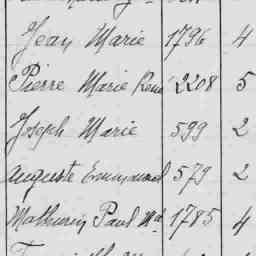 Jean Marie 1796 4
Pierre Marie René 2208 5
Joseph Marie 599 2
Auguste Emmanuel 579 2
Mathurin Paul Md 1785 4